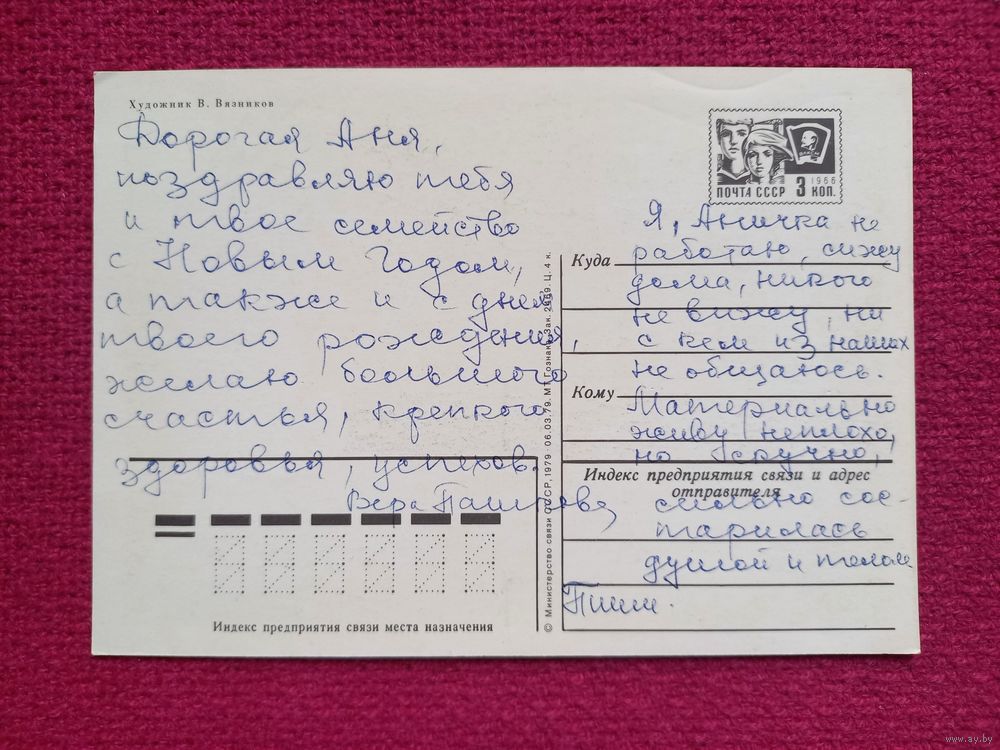 Художник В. Вязников
Дорогая Аня,
поздравляю тебя
и твое семейство
с Новым Годом,
а также и с днем
твоего рождения,
желаю большого
счастья, крепкого
здоровья, успехов.
Вера
Индекс предприятия связи места назначения
© Министерство связи СССР, 1979 · 06.03.79. МТ Гознака. Зак. Ц. 4 к.
ВЛКСМ
1966
ПОЧТА СССР 3 КОП.
Я, Аничка не
Куда
работаю, сижу
дома, никого
не вижу, ни
с кем из наших
не общаюсь.
Кому
Материально
живу неплохо,
но скучно,
Индекс предприятия связи и адрес
отправителя
сильно сос-
тарилась
душой и телом
Пиши.
www.ay.by